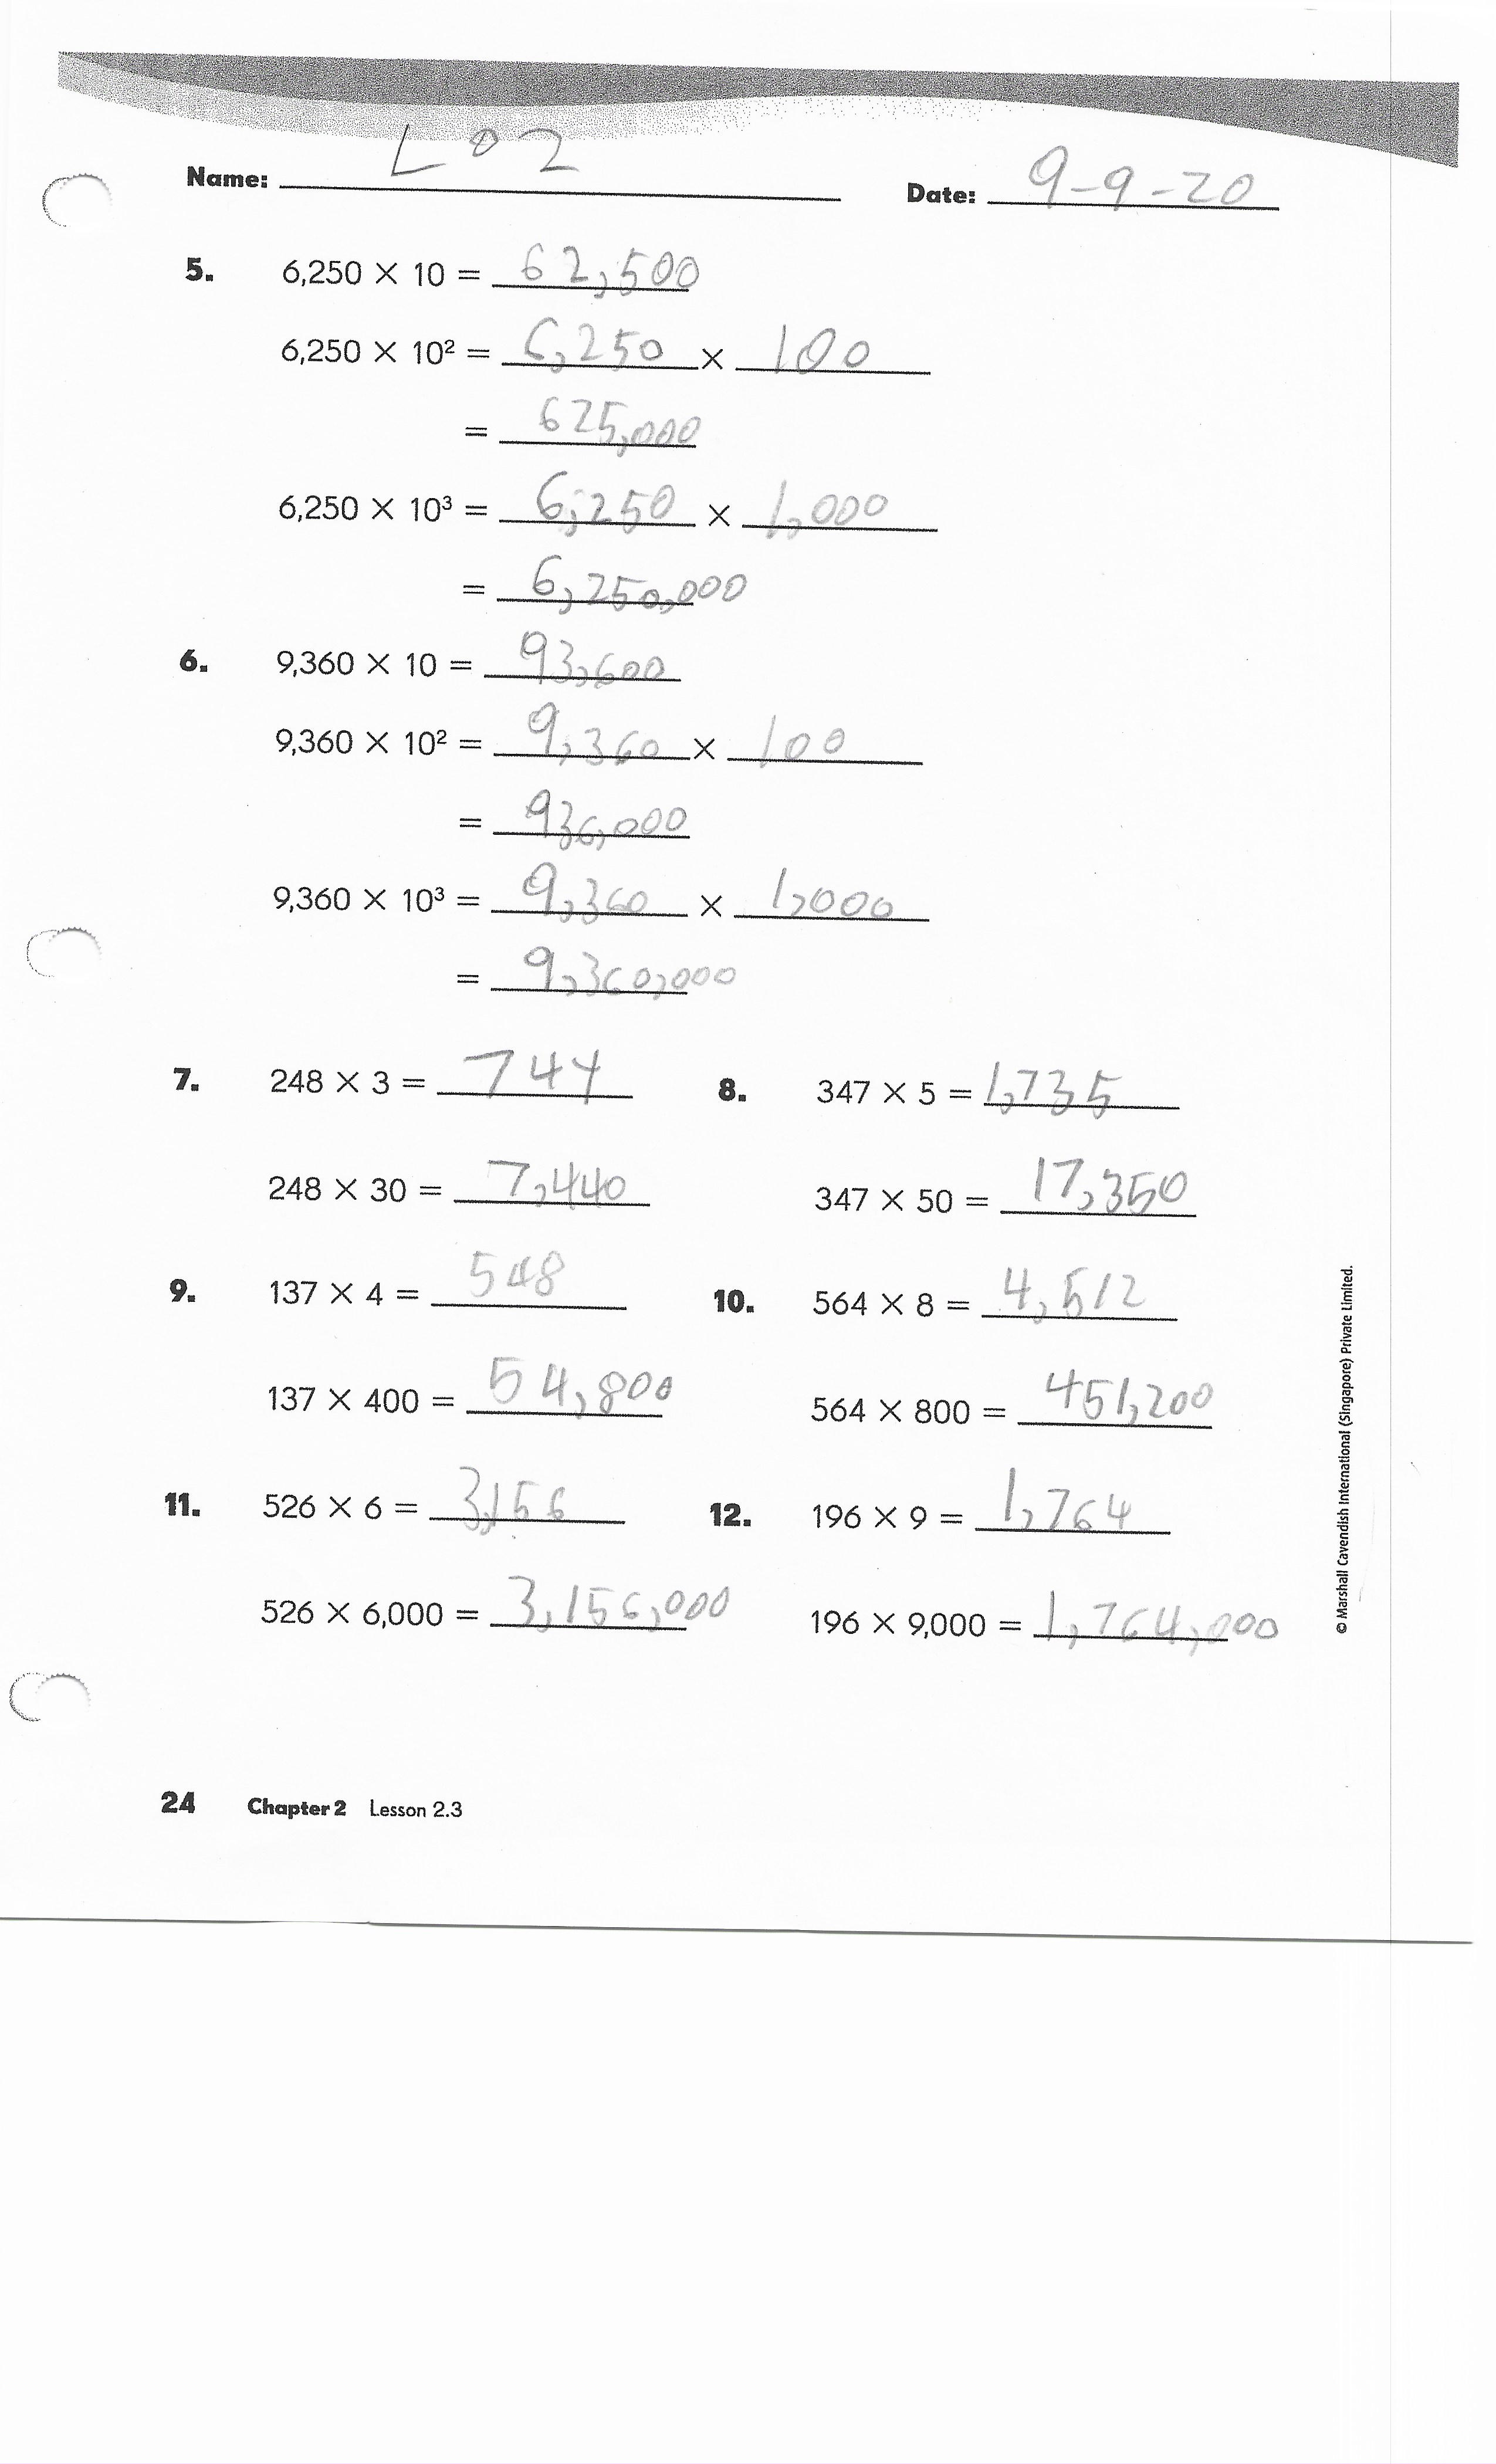 Name: L02 Date: 9-9-20
5. 6,250 × 10 = 62,500
6,250 × 10² = 6,250 × 100
= 625,000
6,250 × 10³ = 6,250 × 1,000
= 6,250,000
6. 9,360 × 10 = 93,600
9,360 × 10² = 9,360 × 100
= 936,000
9,360 × 10³ = 9,360 × 1,000
= 9,360,000
7. 248 × 3 = 744 8. 347 × 5 = 1,735
248 × 30 = 7,440 347 × 50 = 17,350
9. 137 × 4 = 548 10. 564 × 8 = 4,512
137 × 400 = 54,800 564 × 800 = 451,200
11. 526 × 6 = 3,156 12. 196 × 9 = 1,764
526 × 6,000 = 3,156,000 196 × 9,000 = 1,764,000
© Marshall Cavendish International (Singapore) Private Limited.
24 Chapter 2 Lesson 2.3